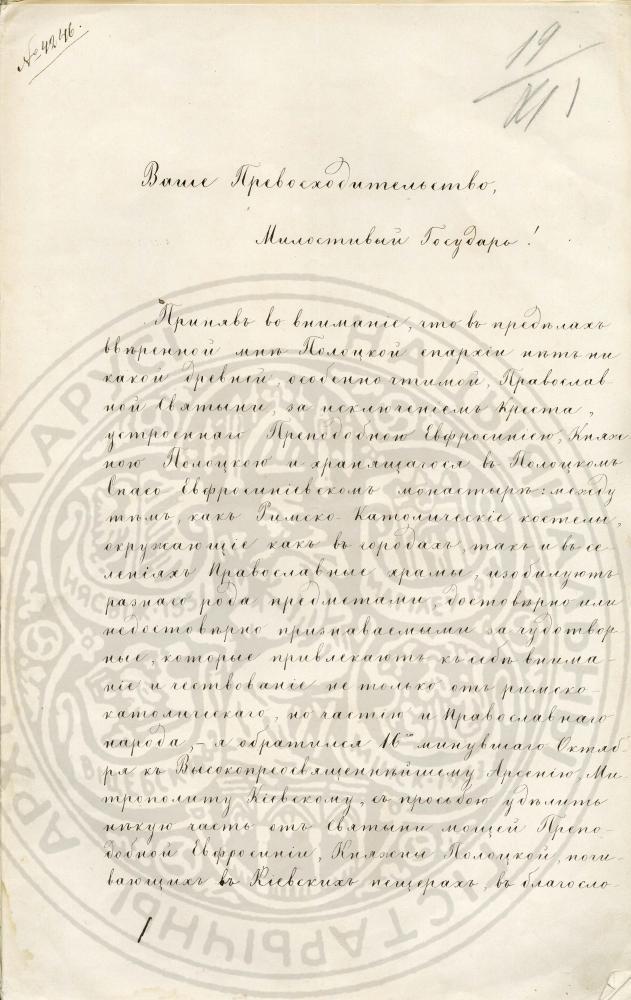 № 4246.
19
XI
Ваше Превосходительство,
Милостивый Государь!
Принявъ во вниманіе, что въ предѣлахъ
ввѣренной мнѣ Полоцкой епархіи нѣтъ ни
какой древней, особенно чтимой, Православ-
ной Святыни, за исключеніемъ Креста,
устроеннаго Преподобною Евфросиніею, Княж-
ною Полоцкою и хранящагося въ Полоцкомъ
Спасо Евфросиніевскомъ монастырѣ: между
тѣмъ, какъ Римско-Католическіе костелы,
окружающіе какъ въ городахъ, такъ и въ се-
леніяхъ Православные храмы, изобилуютъ
разнаго рода предметами, достовѣрно или
недостовѣрно признаваемыми за чудотвор-
ные, которые привлекаютъ къ себѣ внима-
ніе и чествованіе не только отъ римско-
католическаго, но частію и Православнаго
народа, – я обратился 16го минувшаго Октяб-
ря къ Высокопреосвященнѣйшему Арсенію, Ми-
трополиту Кіевскому, съ просьбою удѣлить
нѣкую часть отъ Святыни мощей Препо-
добной Евфросиніи, Княжны Полоцкой, почи-
вающихъ въ Кіевскихъ пещерахъ, въ благосло-